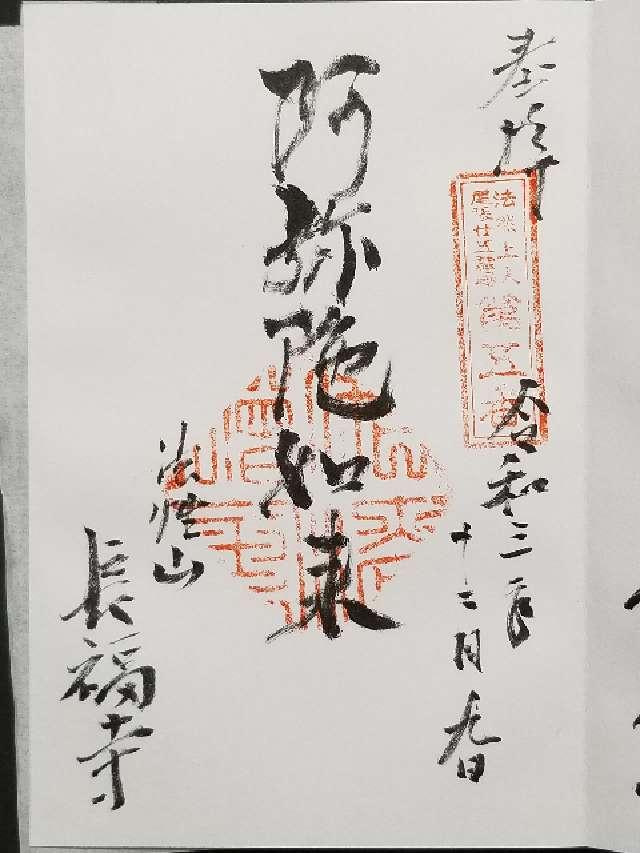 奉拝
法然上人
尾張廿五霊場
第五番
令和三年
十二月九日
阿弥陀如来
法性山
長福寺